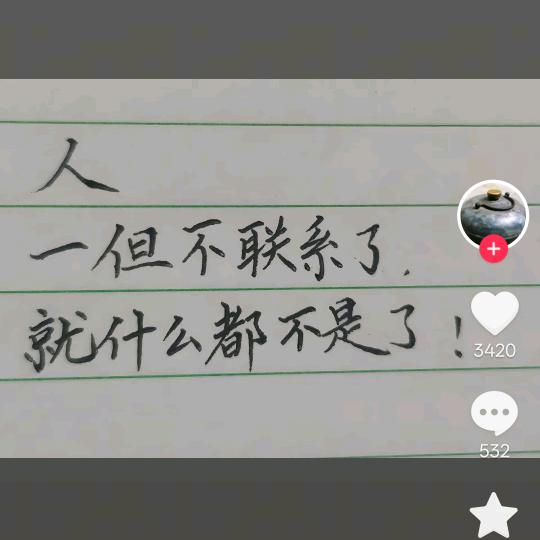 人
一但不联系了.
就什么都不是了!
3420
532